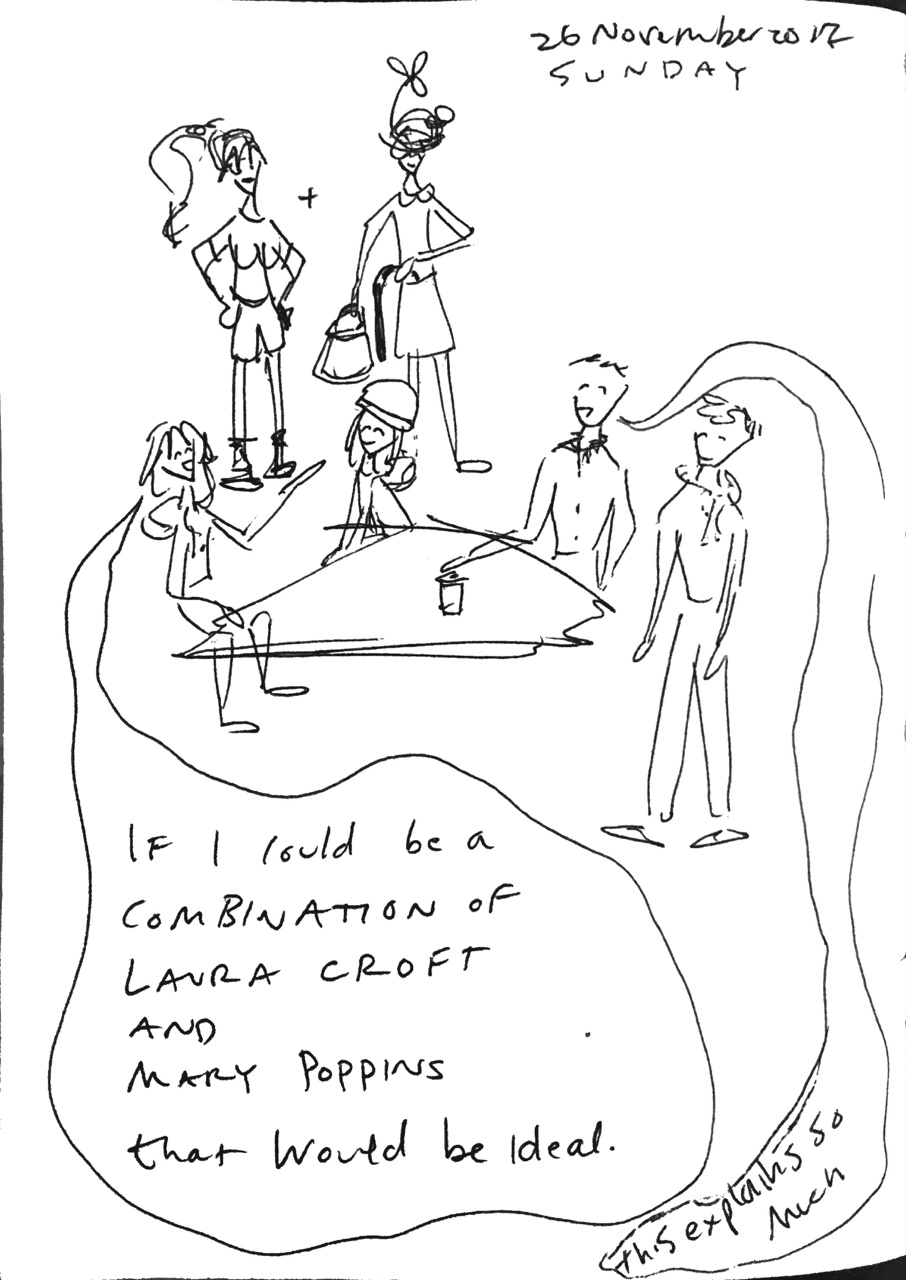 26 November 2017
SUNDAY
+
IF I could be a
COMBINATION OF
LAURA CROFT
AND
MARY POPPINS
that would be ideal.
this explains so
much